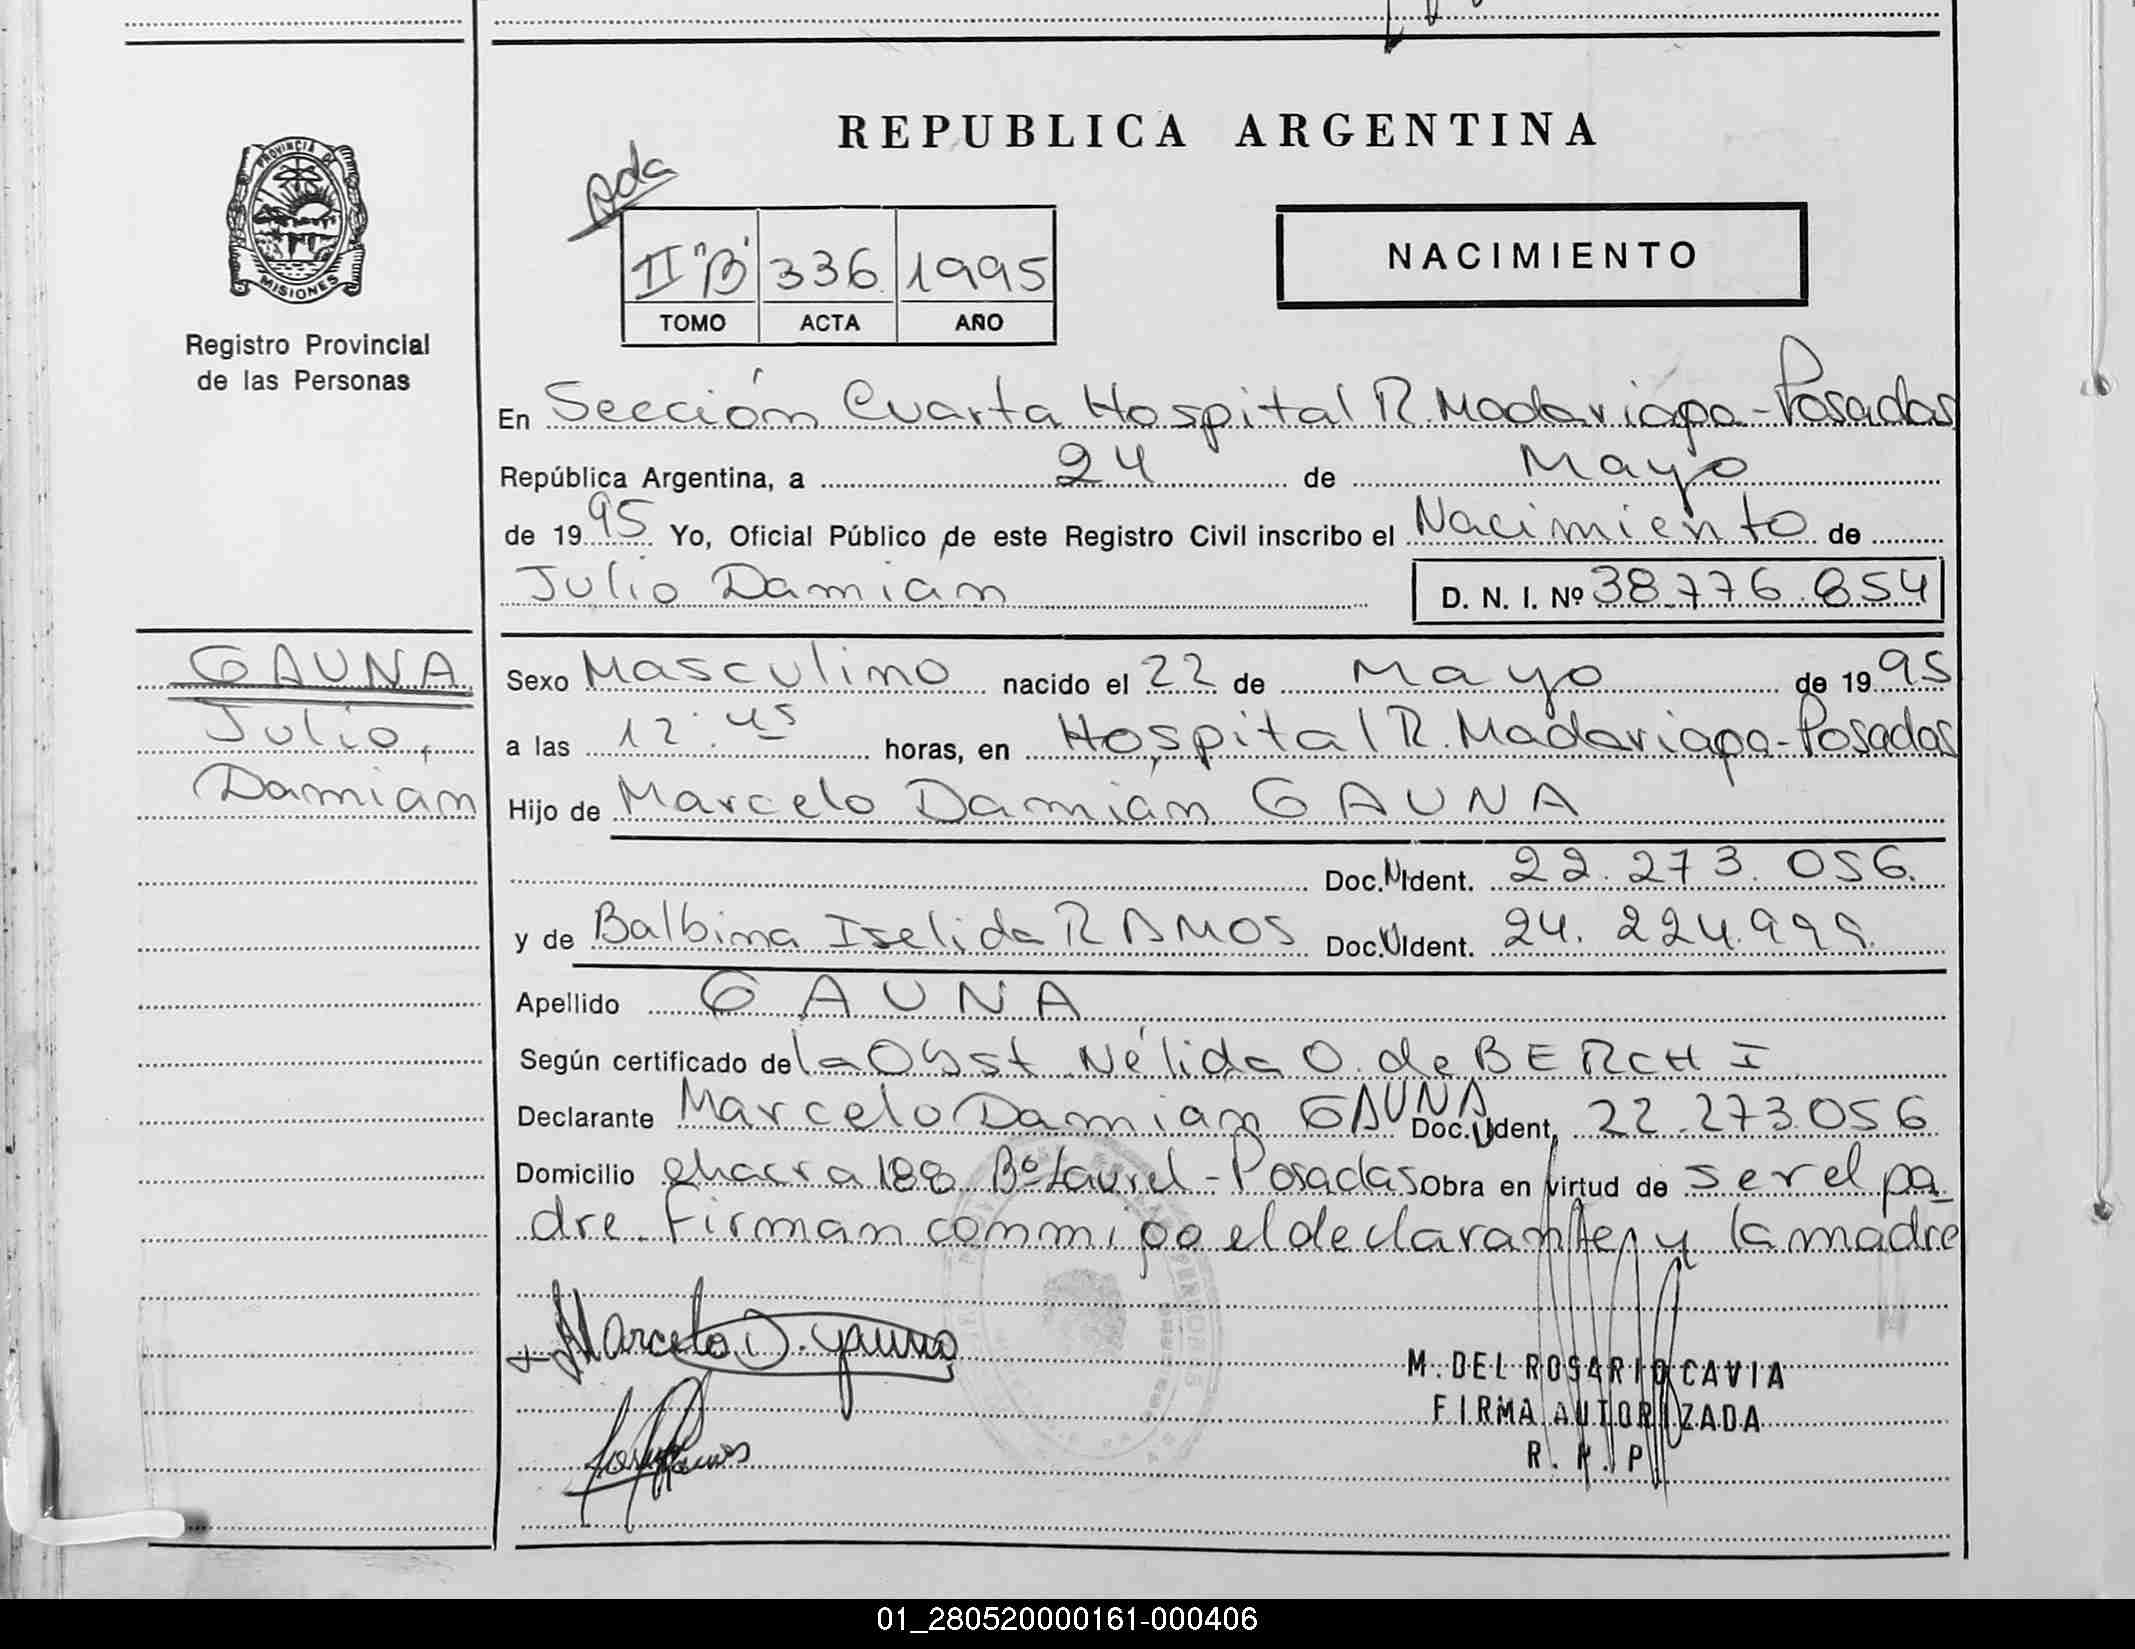 PROVINCIA DE
MISIONES
Registro Provincial
de las Personas
REPUBLICA ARGENTINA
Ada
II "B" 336 1995
TOMO ACTA AÑO
NACIMIENTO
En Sección Cuarta Hospital R. Madariaga - Posadas
República Argentina, a 24 de Mayo
de 1995 Yo, Oficial Público de este Registro Civil inscribo el Nacimiento de
Julio Damian D. N. I. Nº 38.776.854
GAUNA
Julio,
Damian
Sexo Masculino nacido el 22 de Mayo de 1995
a las 12:45 horas, en Hospital R. Madariaga - Posadas
Hijo de Marcelo Damián GAUNA
Doc. Ident. 22.273.056.
y de Balbina Iselida RAMOS Doc. Ident. 24.224.999.
Apellido GAUNA
Según certificado de la Obst Nélida O. de BERCHI
Declarante Marcelo Damian GAUNA Doc. Ident. 22.273.056
Domicilio chacra 188 Bº Laurel - Posadas Obra en virtud de ser el pa-
dre. Firman conmigo el declarante y la madre
Marcelo D. Gauna
M. DEL ROSARIO CAVIA
FIRMA AUTORIZADA
R. P.
01_280520000161-000406